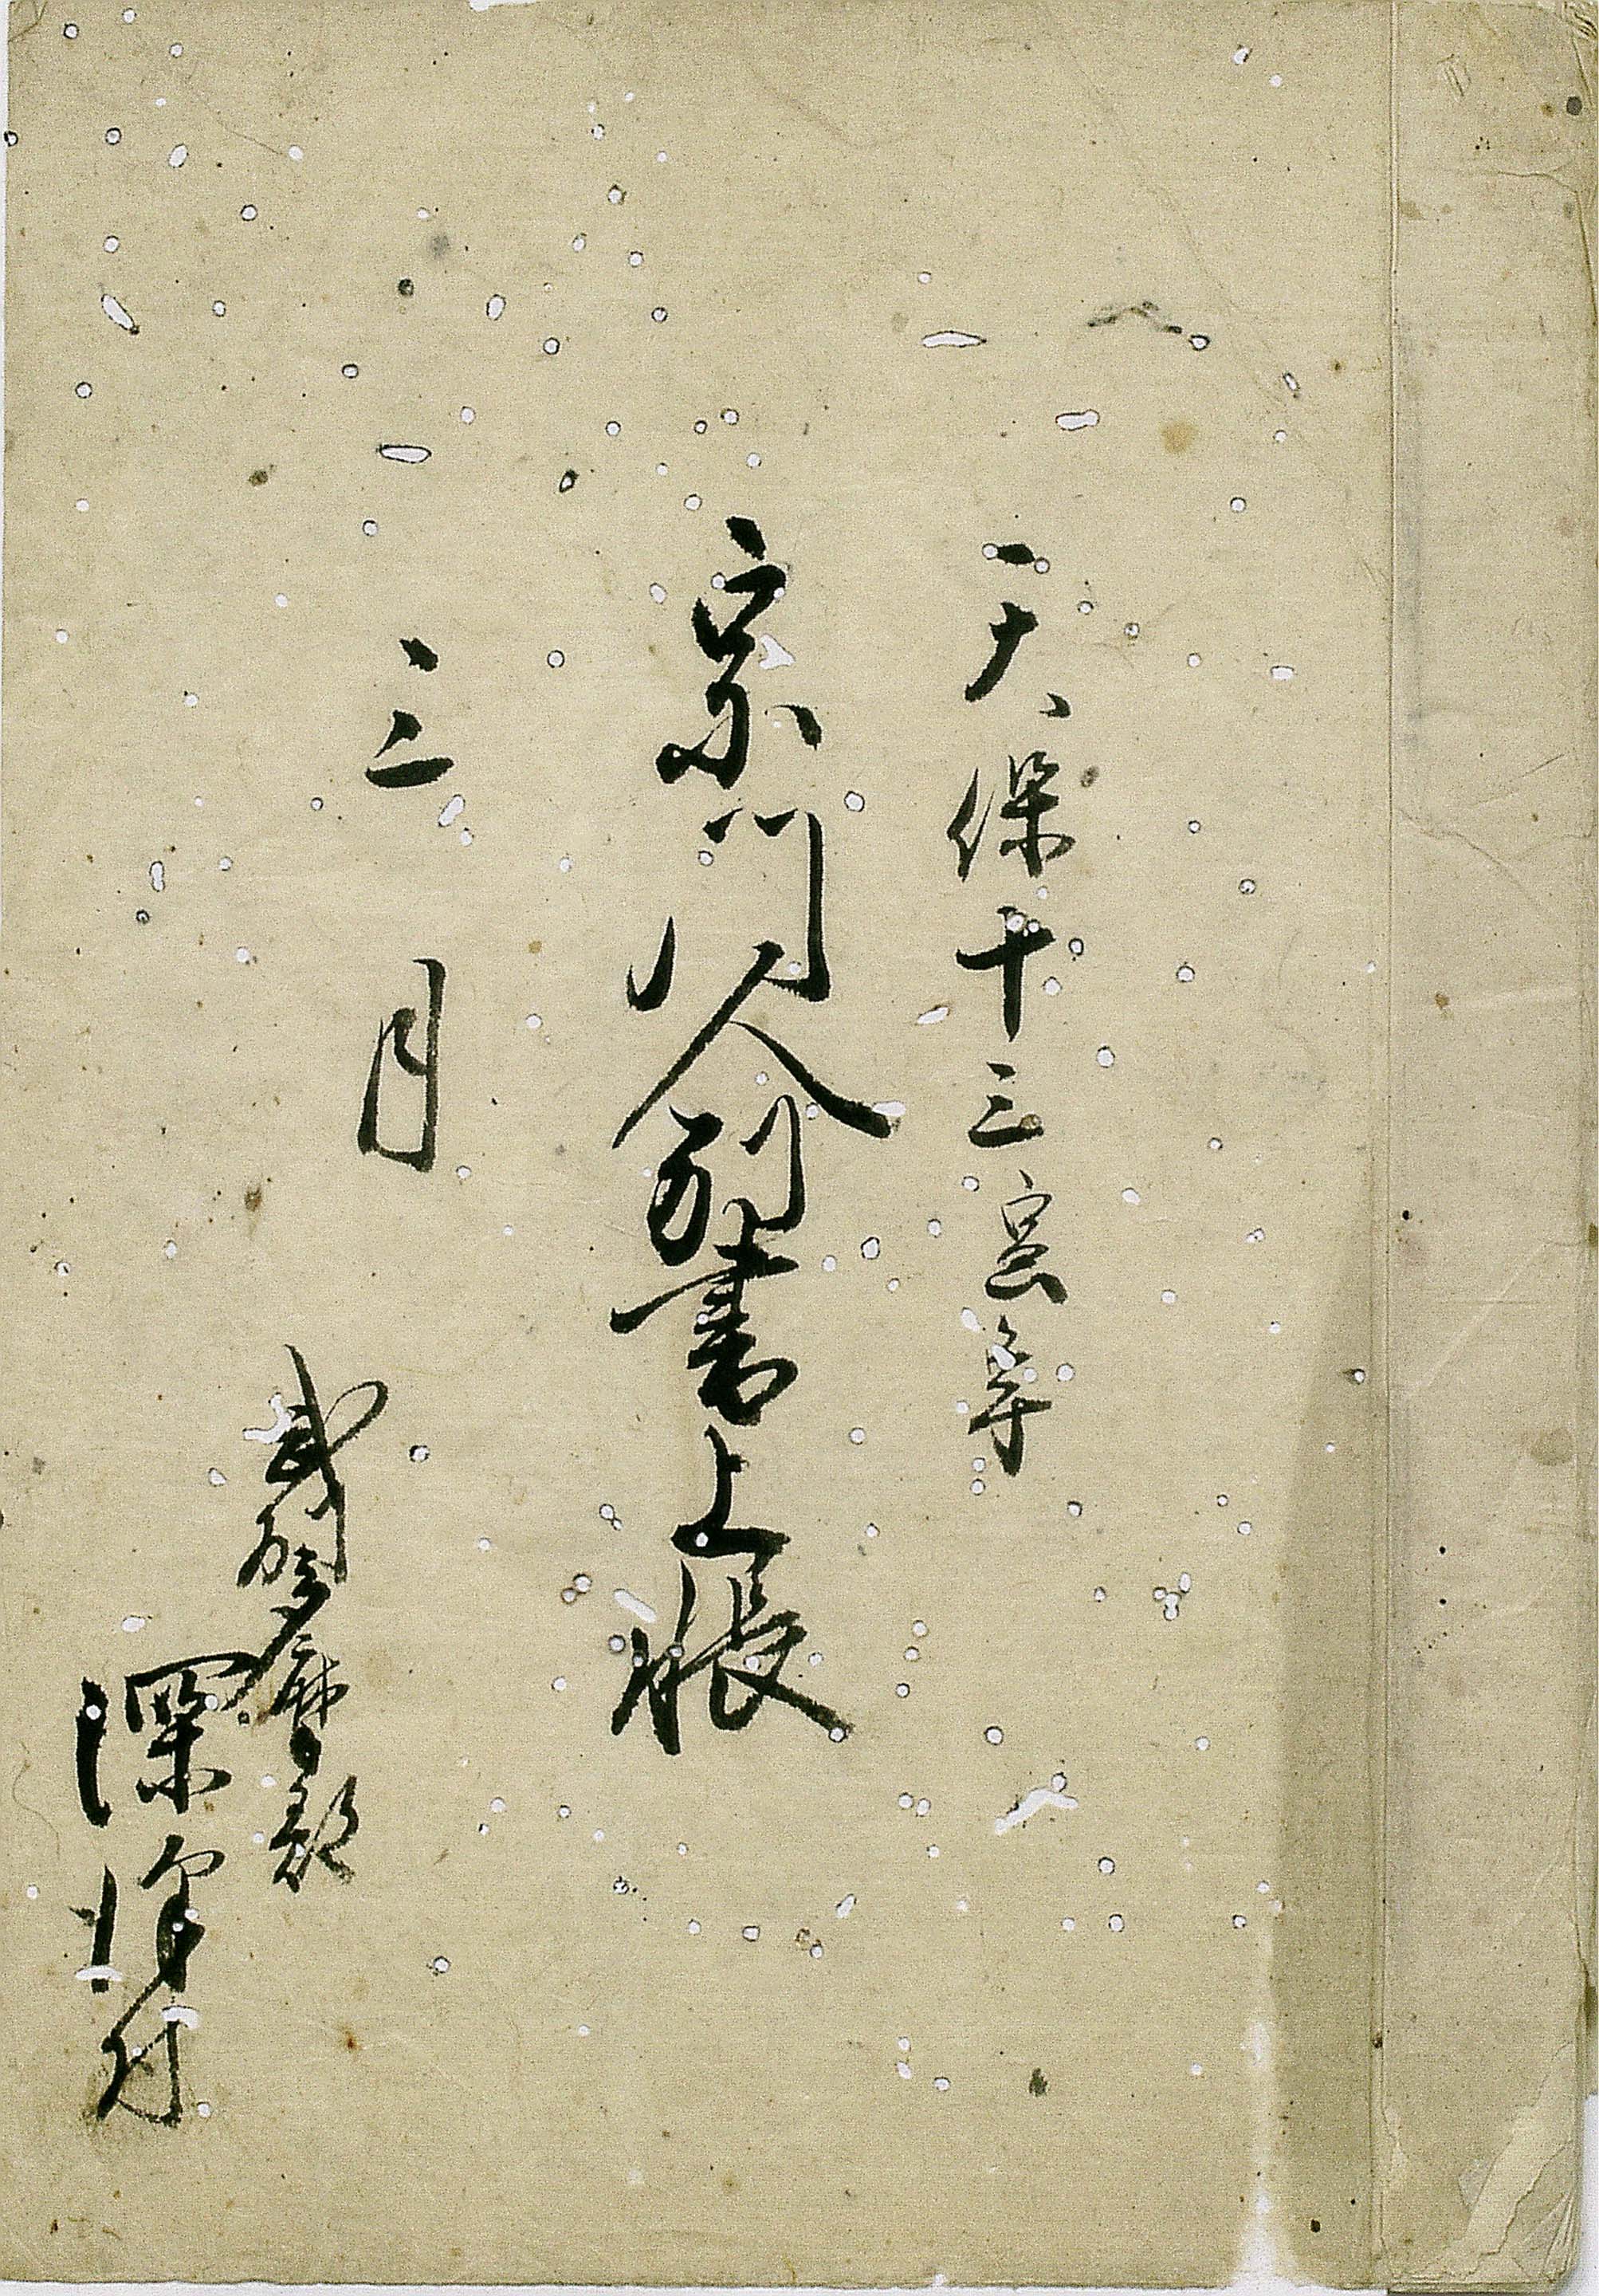 天保十三寅年
宗門人別書上帳
三月
武州多摩郡
深澤村